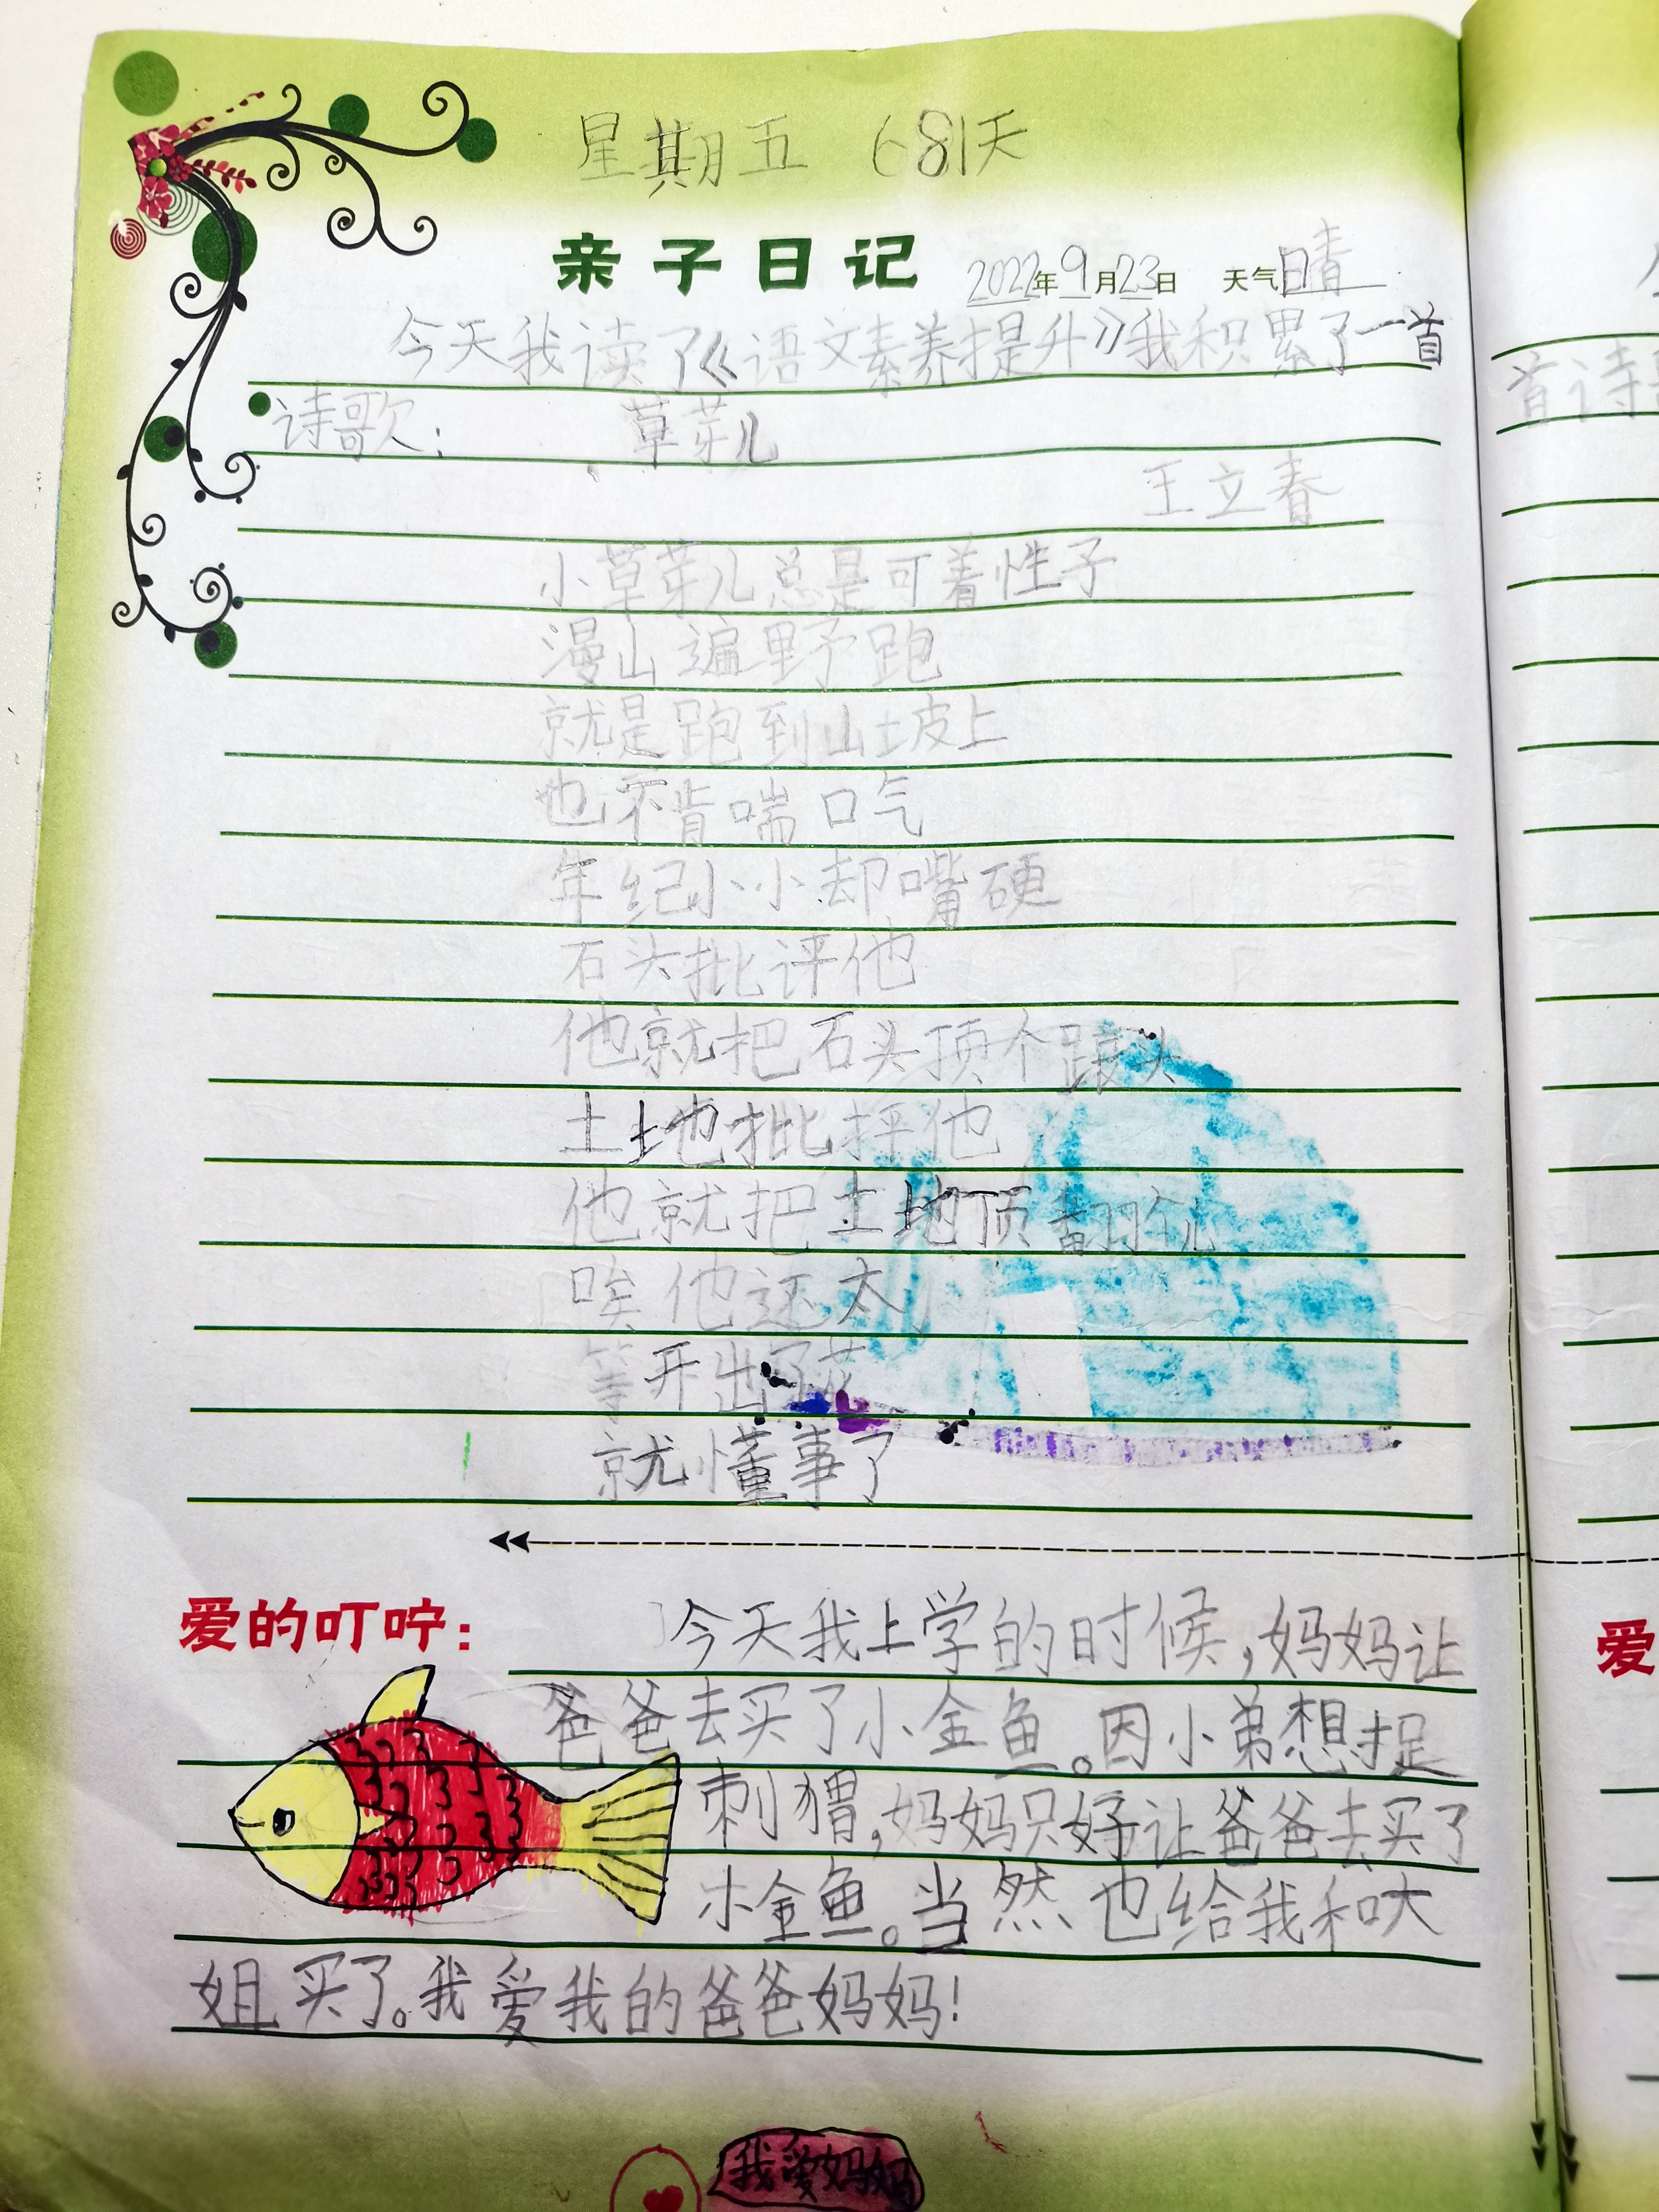 星期五 681天
亲子日记 2022年9月23日 天气晴
今天我读了《语文素养提升》我积累了一首
诗歌: 草芽儿
王立春
小草芽儿总是可着性子
漫山遍野跑
就是跑到山坡上
也不肯喘口气
年纪小小却嘴硬
石头批评他
他就把石头顶个跟头
土地也批评他
他就把土地顶翻个儿
唉他还太
等开出了花
就懂事了
爱的叮咛:
今天我上学的时候,妈妈让
爸爸去买了小金鱼。因小弟想捉
刺猬,妈妈只好让爸爸去买了
小金鱼。当然也给我和大
姐买了。我爱我的爸爸妈妈!
我爱妈妈
首诗
爱